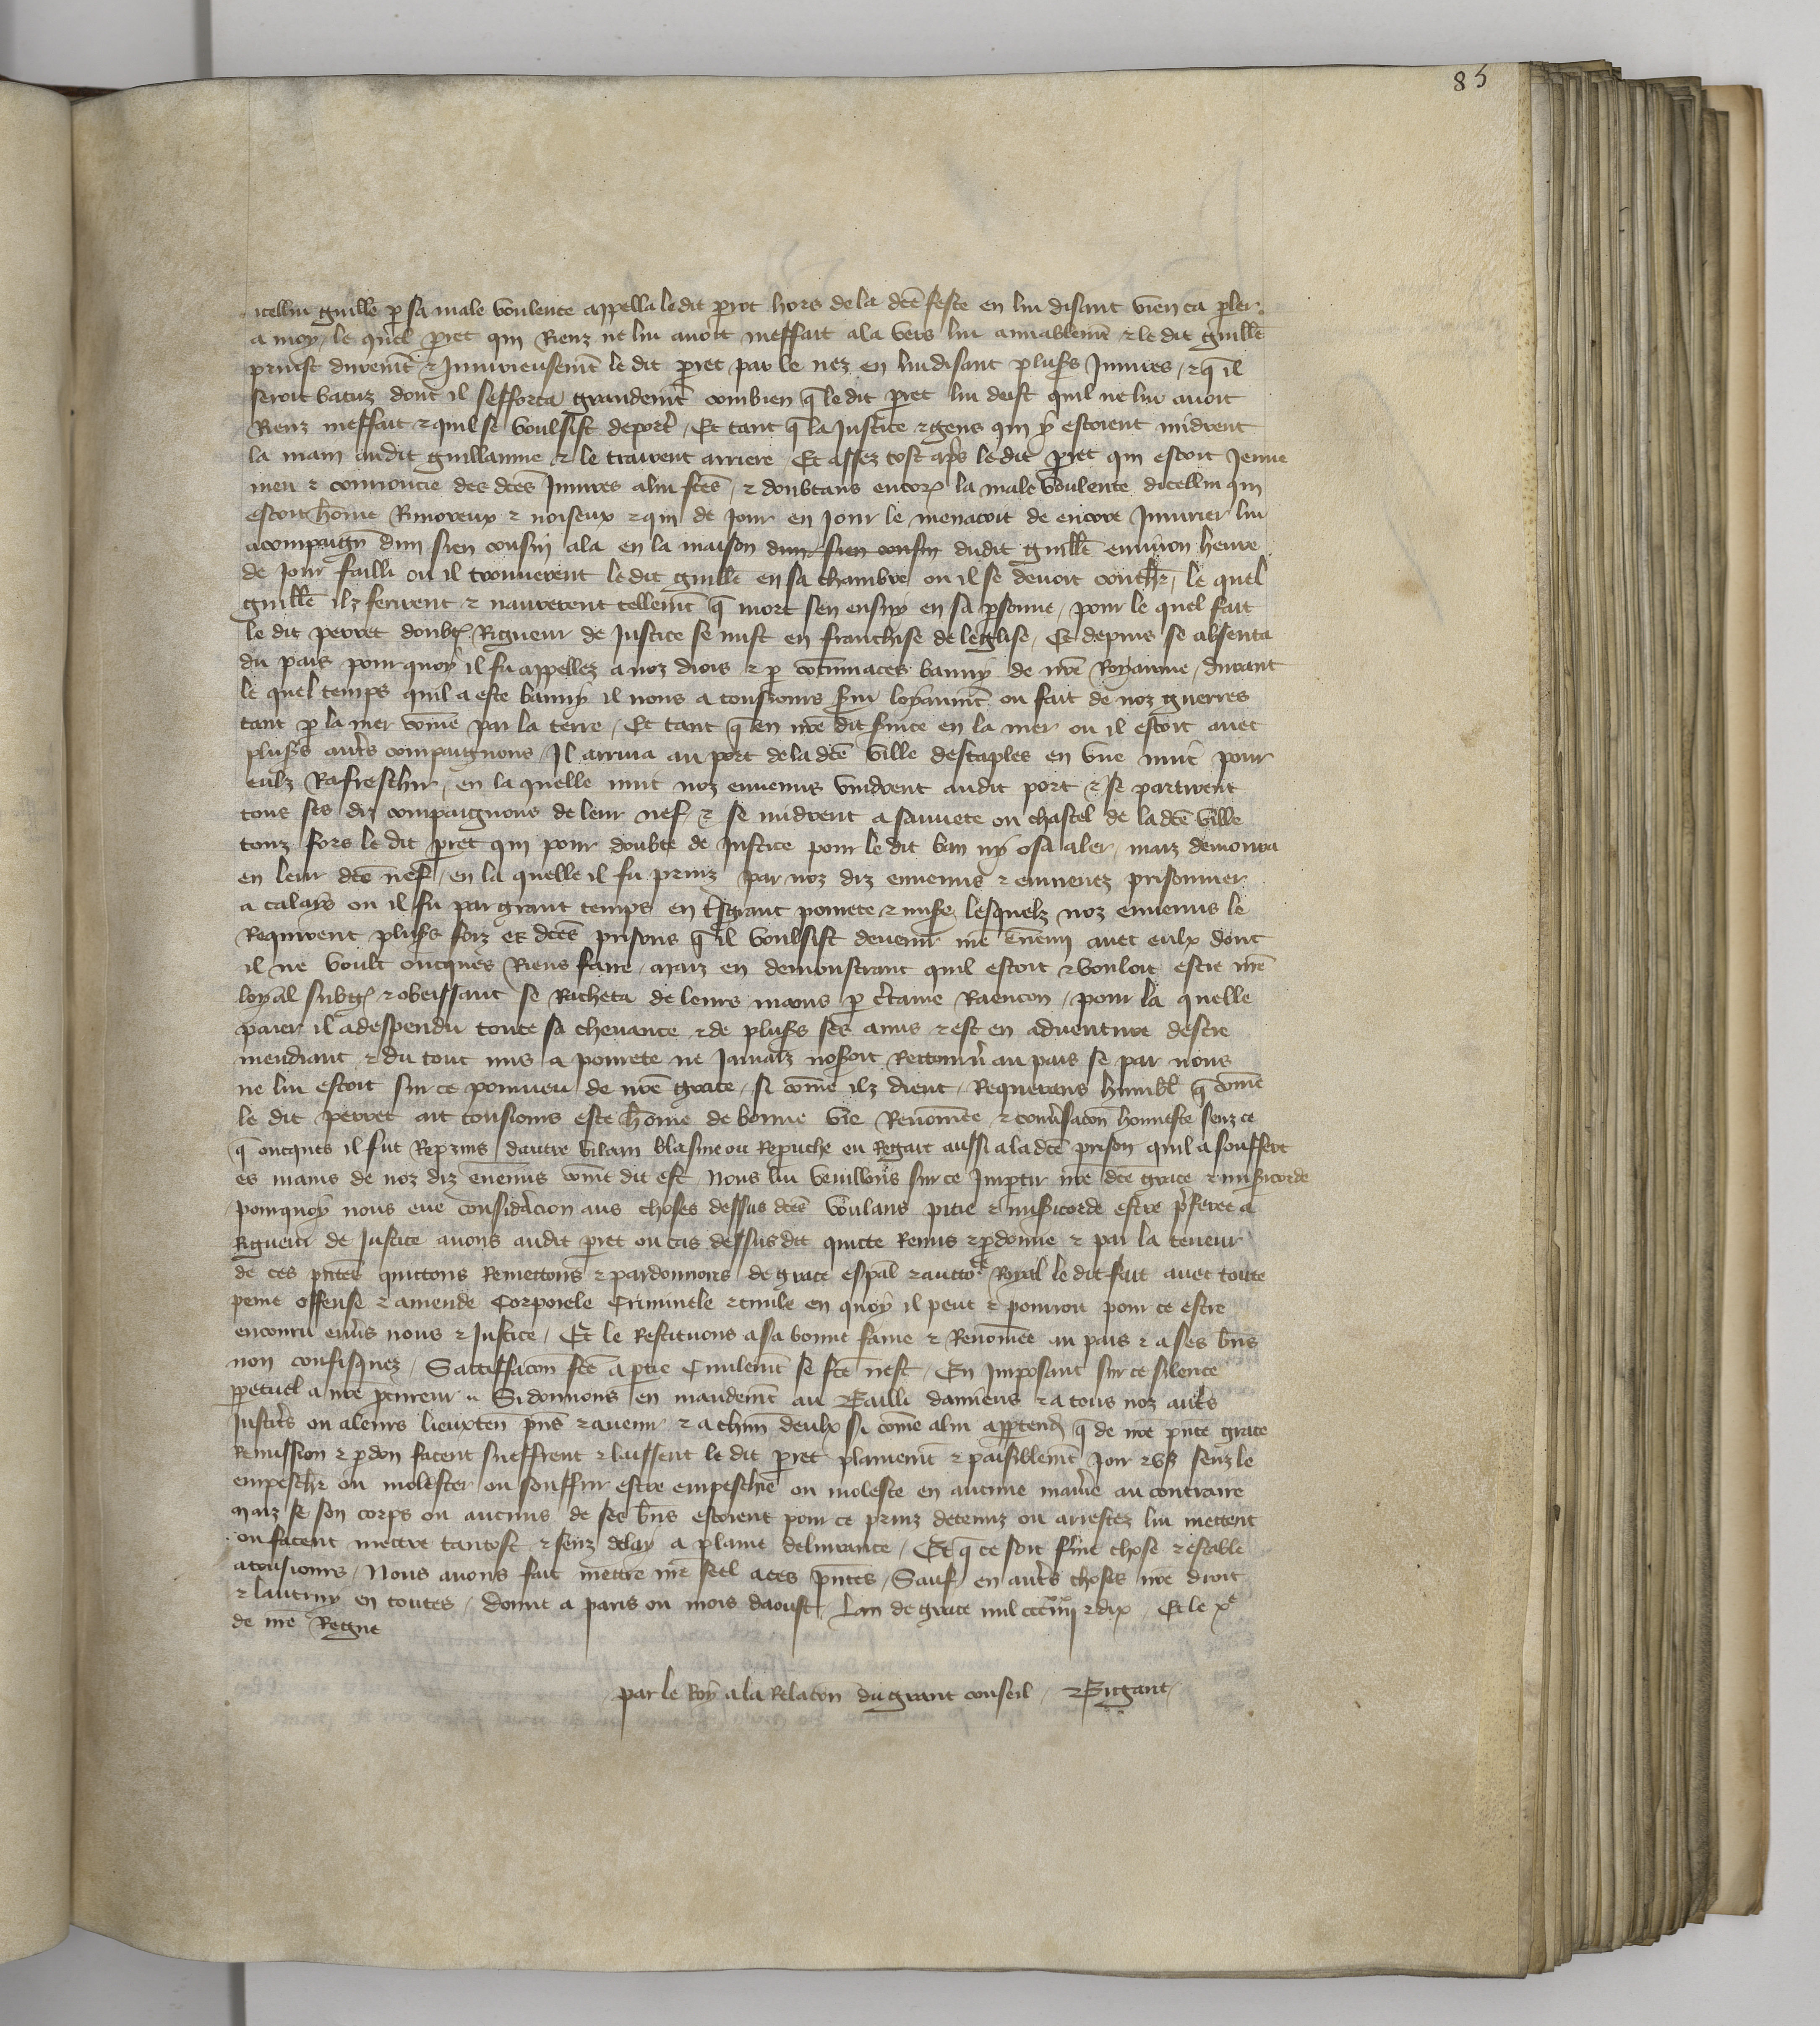 85
icellui guille p sa male voulente appella ledit perrot hors de la dce feste en lui disant vien ca pler
a moy, le quel pret qui Rienz ne lui avoit meffait ala vers lui amiablemt & le dit guille
prinst duremt & Iniurieusemt le dit pret par le nez en lui disant plusrs Iniures, & q il
seroit batuz dont il sefforca grandemt combien q le dit pret lui deist quil ne lui avoit
Rienz meffait & quil se voulsist deportr, Et tant q la Justice & gens qui y estoient midrent
la main audit guillaume & le trairent arriere Et assez tost aprs le dit pret qui estoit Jeune
meu & courroucie des dces Iniures a lui fces, & doubtans encor la male voulente dicellui qui
estoit home Rimoreux & noiseux & qui de jour en jour le menacoit de encore Iniurier lui
acompaign dun sien cousin ala en la maison dun sien cousin dudit guille environ heure
de jour failli ou il trouverent le dit guille en sa chambre ou il se devoit couchr, le quel
guille ilz ferirent & navrerent tellemt q mort sen ensuy en sa psonne, pour le quel fait
le dit perret doubt Rigueur de Justice se mist en franchise de leglise, Et depuis se absenta
du pais pour quoy il fu appellez a noz drois & p contumaces banny de nre Royaume, durant
le quel temps quil a este banny il nous a tousiours svi loyaumt ou fait de noz guerres
tant p la mer come par la terre, Et tant q en nre dit svice en la mer ou il estoit avec
plusrs autrs compaignons, Il arriva au port de la dce ville destaples en une nuit pour
eulz Rafreschir, en la quelle nuit noz ennemis vindrent audit port & se partirent
tous ses diz compaignons de leur nef & se midrent a sauvete ou chastel de la dce ville
touz fors le dit pret qui pour doubte de Justice pour le dit ban ny osa aler, maiz demoura
en leur dce nef, en la quelle il fu prins par noz diz ennemis & emmenez prisonnier
a calays ou il fu par grant temps en tsgrant povrete & mise, lesquelz noz ennemis le
Requirent plusrs foiz es dces prisons q il voulsist devenir nre ennemi avec eulx dont
il ne voult oncques Riens faire, maiz en demonstrant quil estoit & vouloit estre nre
loyal subgt & obeissant se Racheta de leurs mains p ctaine Raencon, pour la quelle
paier il a despendu toute sa chevance & de plusrs ses amis & est en adventure destre
mendiant & du tout mis a povrete ne jamaiz noseroit Retournr au pais se par nous
ne lui estoit sur ce pourveu de nre grace, si come ilz dient, Requerans humblt q come
le dit perret ait tousiours este home de bonne vie Renomee & convsacon honneste senz ce
q oncques il fut Reprins dautre vilain blasme ou Reprouche eu Regart aussi a la dce prison quil a souffert
es mains de noz diz ennemis come dit est, Nous lui veuillons sur ce Impartir nre dce grace & misicorde
pourquoy nous eue considracion aus choses dessus dces voulans pitie & misicorde estre prferee a
Rigueur de Justice avons audit pret ou cas dessusdit quicte Remis & pdonne & par la teneur
de ces pntes quictons Remettons & pardonnons de grace espal & auctote Royal le dit fait avec toute
peine offense & amende Corporele Criminele & civile en quoy il peut & pourroit pour ce estre
encouru envrs nous & Justice, Et le Restituons a sa bonne fame & Renomee au pais & a ses bns
non confisquez, Satiffacon fce a ptie Civilemt se fce nest, En Imposant sur ce silence
ppetuel a nre pcureur. Si donnons en mandemt au Bailli damiens & a tous noz autrs
Justicrs ou a leurs lieuxten pns & avenir & a chun deulx si come a lui apptend q de nre pnte grace
Remission & pdon facent sueffrent & laissent le dit pret plainemt & paisiblemt Joir & us senz le
empeschr ou molester ou souffrir estre empeschie ou moleste en aucune manre au contraire
maiz se son corps ou aucuns de ses bns estoient pour ce prinz detenuz ou arrestez lui mettent
ou facent mettre tantost & senz delay a plaine delivrance, Et q ce soit fme chose & estable
a tousiours, Nous avons fait mettre nre seel a ces pntes, Sauf en autrs choses nre droit
& lautruy en toutes, Donne a paris ou mois daoust, Lan de grace mil ccc iiiixx & dix, Et le xe
de nre Regne
par le Roy a la Relacon du grant conseil, Bigant